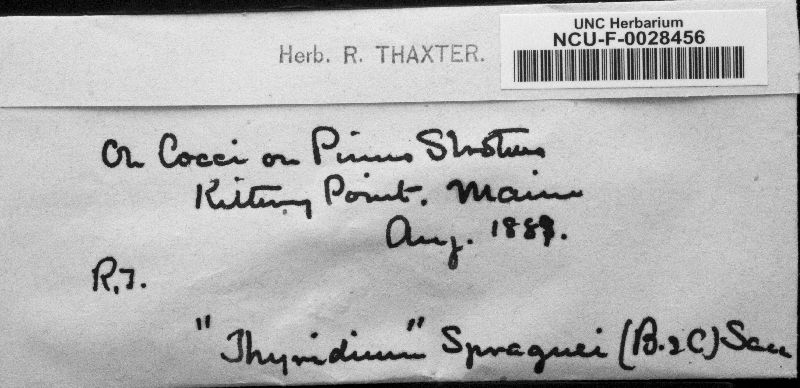 UNC Herbarium
NCU-F-0028456
Herb. R. THAXTER.
On Cocci on Pinus Strobus
Kittery Point. Maine
Aug. 1889.
R.T.
"Thyridium" Spraguei (B. & C) Sacc